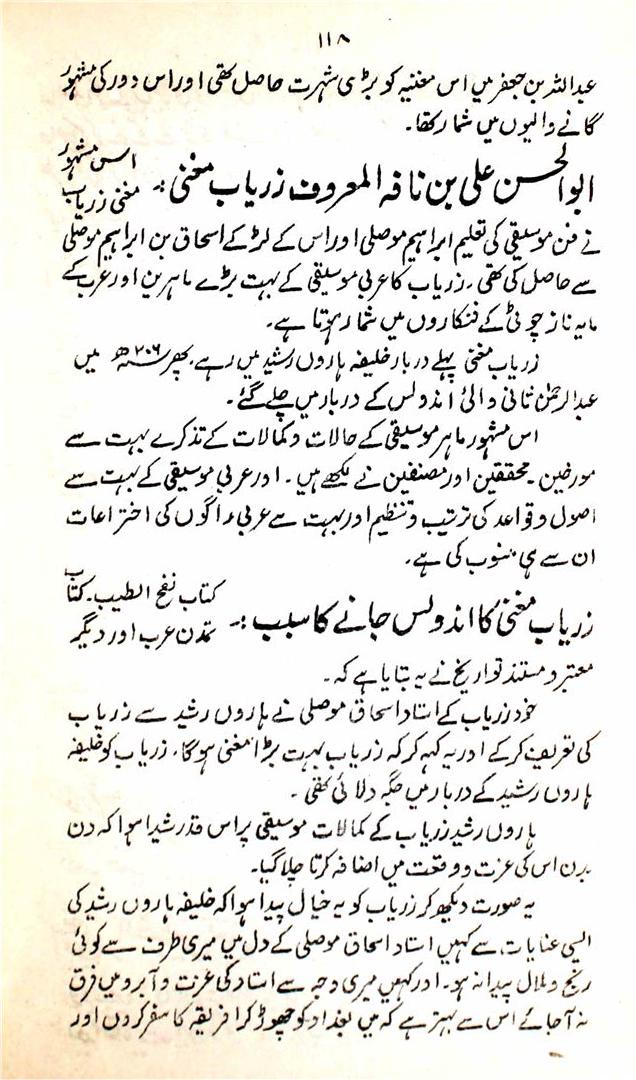 ۱۱۸
عبداللہ بن جعفر میں اس مغنیہ کو بڑی شہرت حاصل تھی اور اس دور کی مشہور
گانے والیوں میں شمار تھا۔
ابوالحسن علی بن نافہ المعروف زریاب مغنی :۔ اس مشہور
مغنی زریاب
نے فن موسیقی کی تعلیم ابراہیم موصلی اور اس کے لڑکے اسحاق بن ابراہیم موصلی
سے حاصل کی تھی ۔ زریاب کا عربی موسیقی کے بہت بڑے ماہرین اور عرب کے
مایہ ناز چوٹی کے فنکاروں میں شمار ہوتا ہے۔
زریاب مغنی پہلے دربار خلیفہ ہاروں رشید میں رہے پھر ۲۰۶ھ میں
عبدالرحمٰن ثانی والئ انڈولس کے دربار میں چلے گئے۔
اس مشہور ماہر موسیقی کے حالات و کمالات کے تذکرے بہت سے
مورخین ۔ محققین اور مصنفین نے لکھے ہیں ۔ اور عربی موسیقی کے بہت سے
اصول و قواعد کی ترتیب و تنظیم اور بہت سے عربی راگوں کی اختراعات
ان سے ہی منسوب کی ہے۔
زریاب مغنی کا انڈولس جانے کا سبب :۔ کتاب نفح الطیب ۔ کتاب
تمدن عرب اور دیگر
معتبر و مستند تواریخ نے یہ بتایا ہے کہ ۔
خود زریاب کے استاد اسحاق موصلی نے ہاروں رشید سے زریاب
کی تعریف کر کے اور یہ کہہ کر کہ زریاب بہت بڑا مغنی ہوگا، زریاب کو خلیفہ
ہاروں رشید کے دربار میں جگہ دلائی تھی ۔
ہاروں رشید زریاب کے کمالات موسیقی پر اس قدر شیدا ہوا کہ دن
بدن اس کی عزت و وقعت میں اضافہ کرتا چلا گیا۔
یہ صورت دیکھ کر زریاب کو یہ خیال پیدا ہوا کہ خلیفہ ہاروں رشید کی
ایسی عنایات سے کہیں استاد اسحاق موصلی کے دل میں میری طرف سے کوئی
رنج و ملال پیدا نہ ہو ۔ اور کہیں میری وجہ سے استاد کی عزت و آبرو میں فرق
نہ آ جائے اس سے بہتر ہے کہ میں بغداد کو چھوڑ کر افریقہ کا سفر کروں اور